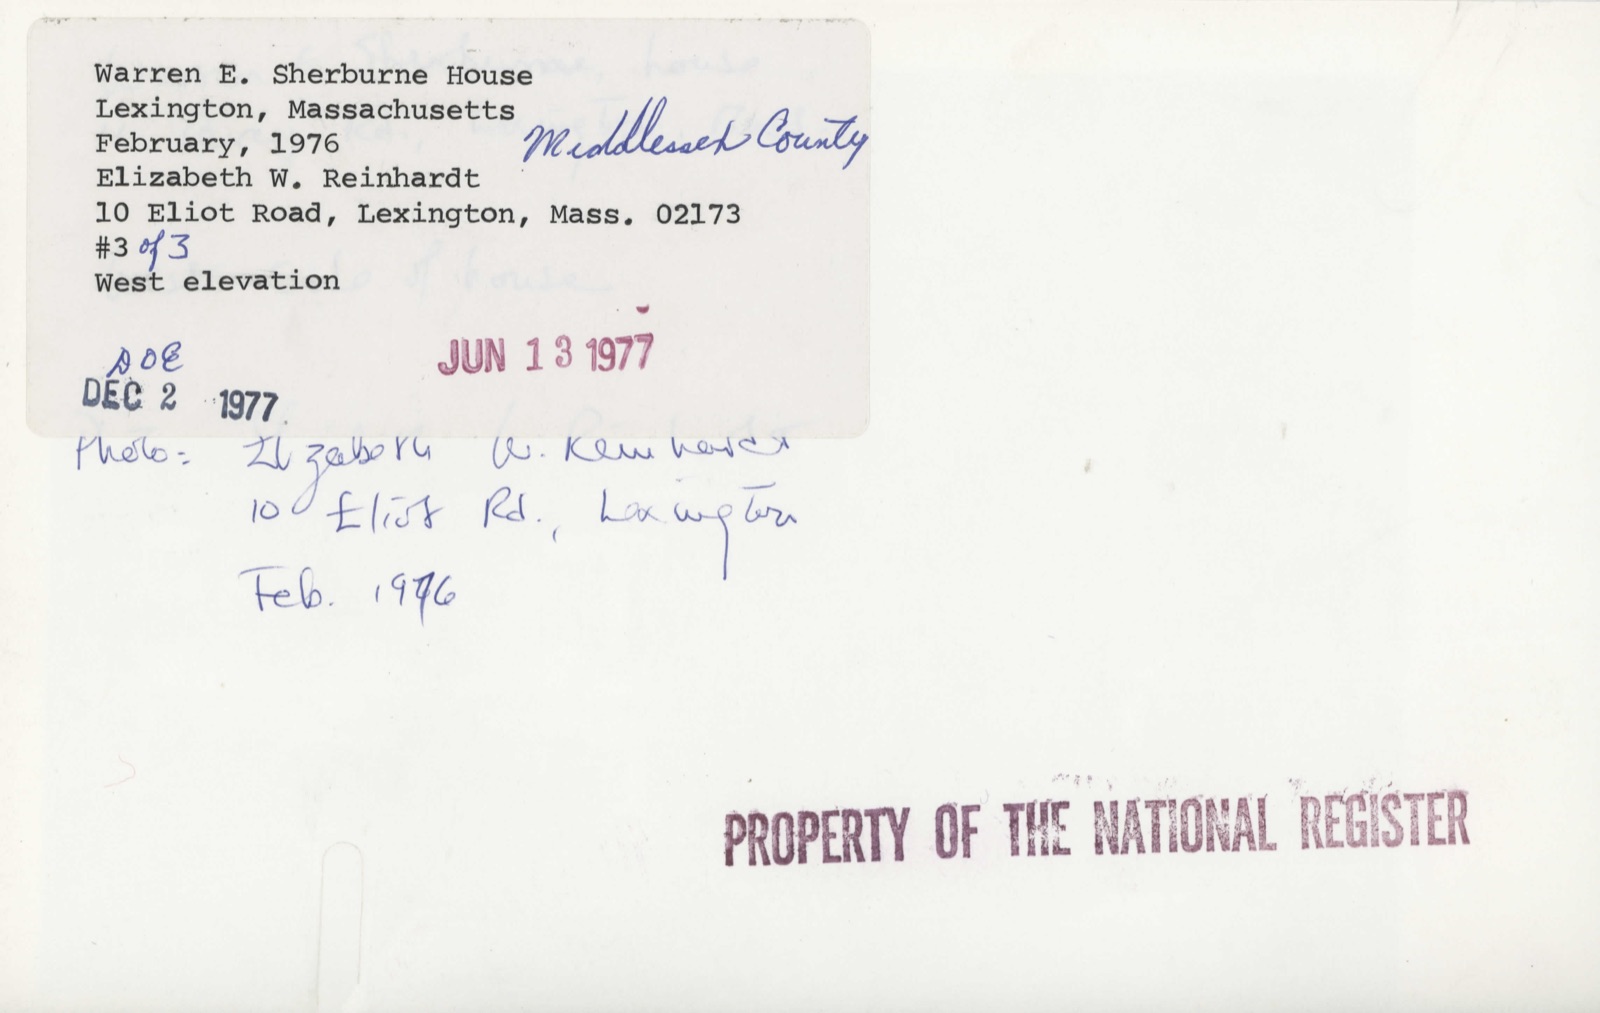 Warren E. Sherburne House
Lexington, Massachusetts
February, 1976
Middlessex County
Elizabeth W. Reinhardt
10 Eliot Road, Lexington, Mass. 02173
#3 of 3
West elevation
DOE
JUN 13 1977
DEC 2 1977
Photo: Elizabeth W. Reinhardt
10 Eliot Rd., Lexington
Feb. 1976
PROPERTY OF THE NATIONAL REGISTER